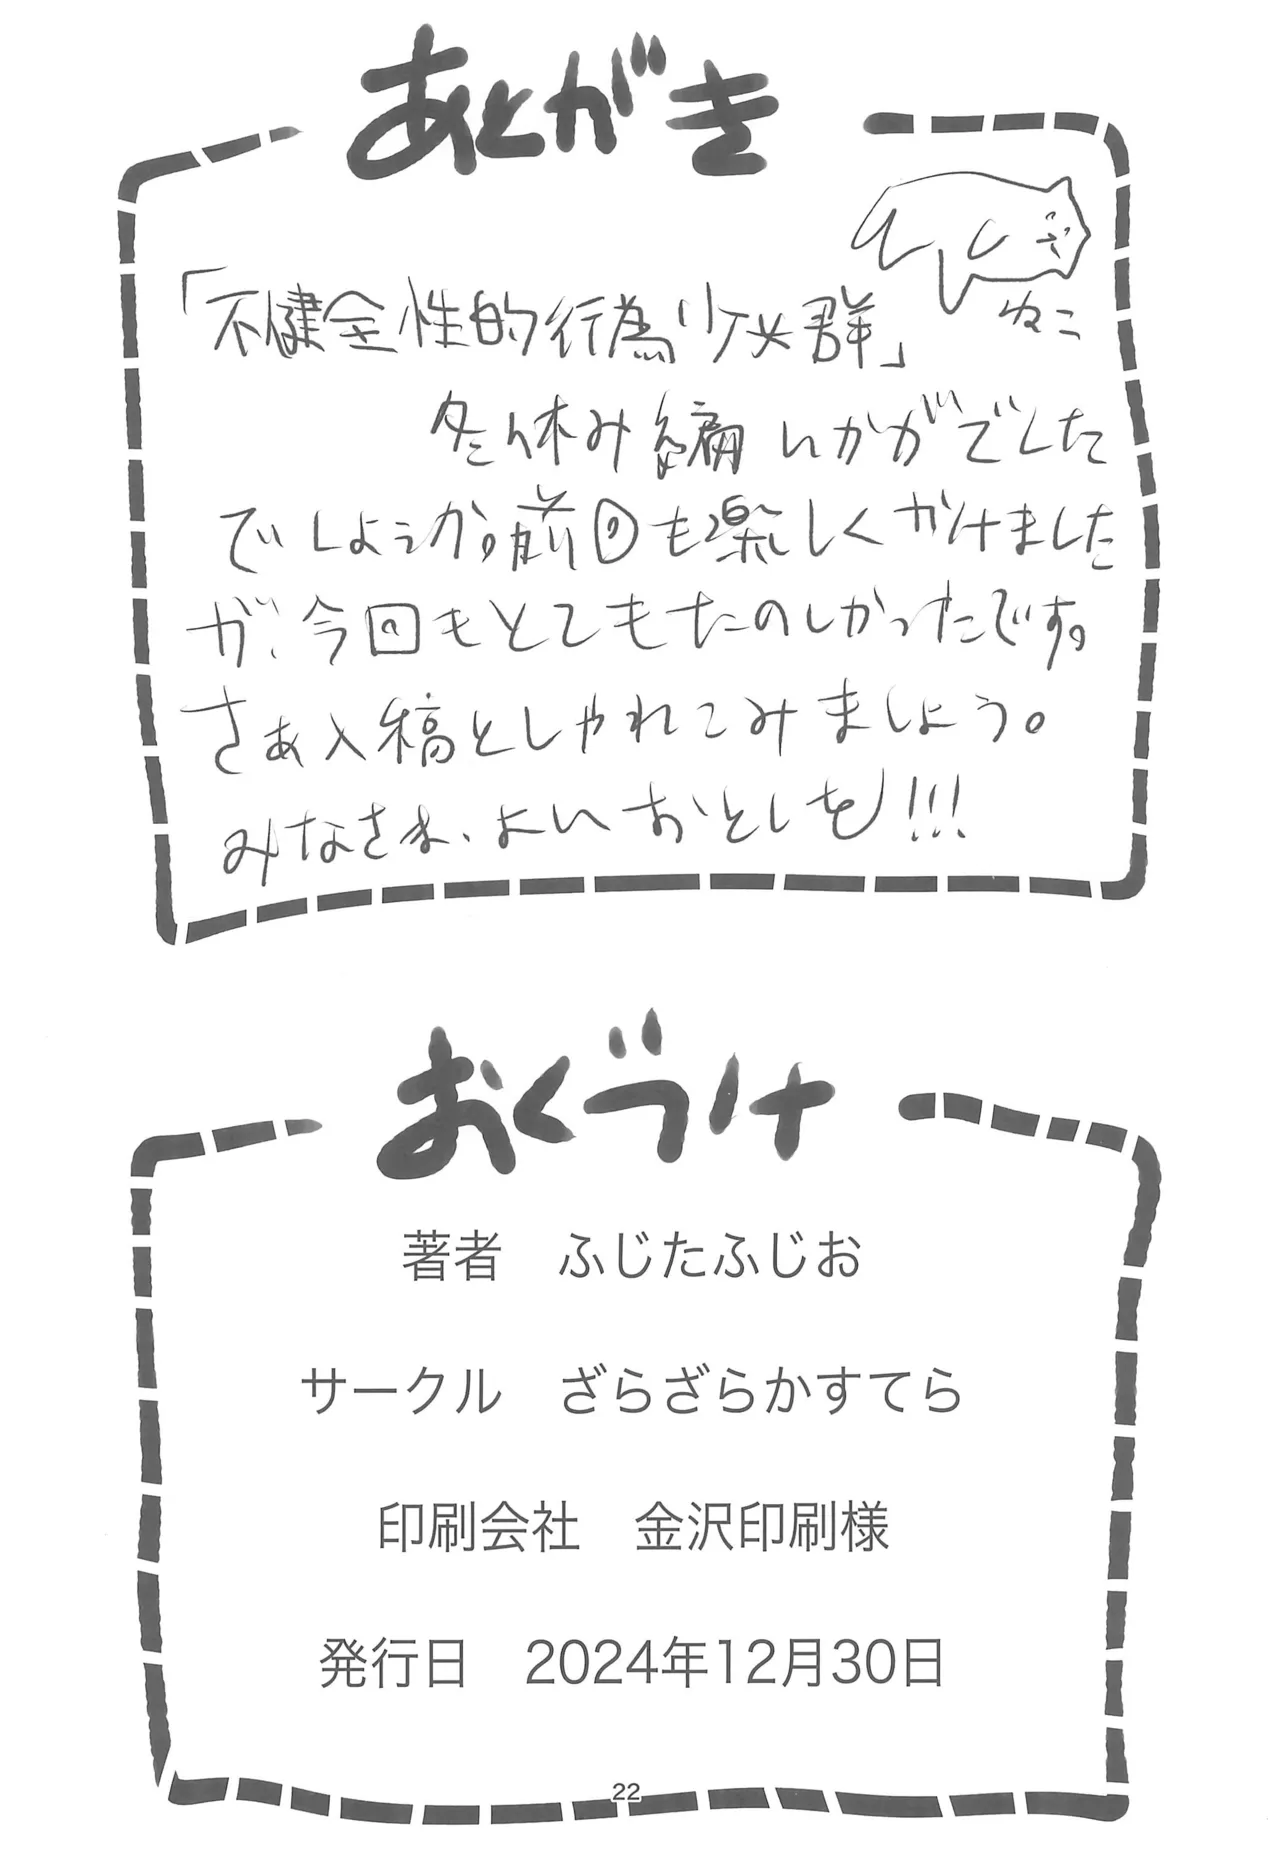 あとがき
ねこ
「不健全性的行為少女群」
冬休み編いかがでした
でしょうか。前回も楽しくかけました
が、今回もとてもたのしかったです。
さぁ入稿としゃれてみましょう。
みなさま、よいおとしを!!!
おくづけ
著者 ふじたふじお
サークル ざらざらかすてら
印刷会社 金沢印刷様
発行日 2024年12月30日
22